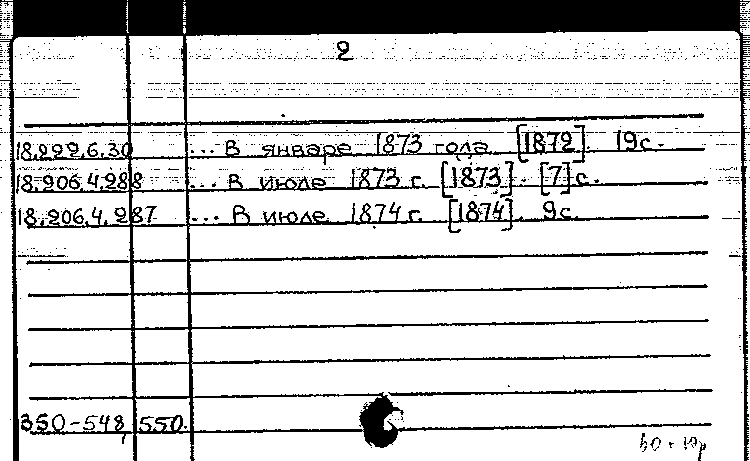 2
18.222.6.30 ... В январе 1873 года. [1872]. 19с.
18.206.4.288 ... В июле 1873 г. [1873]. [7]с.
18.206.4.287 ... В июле 1874 г. [1874]. 9с.
350-548, 550.